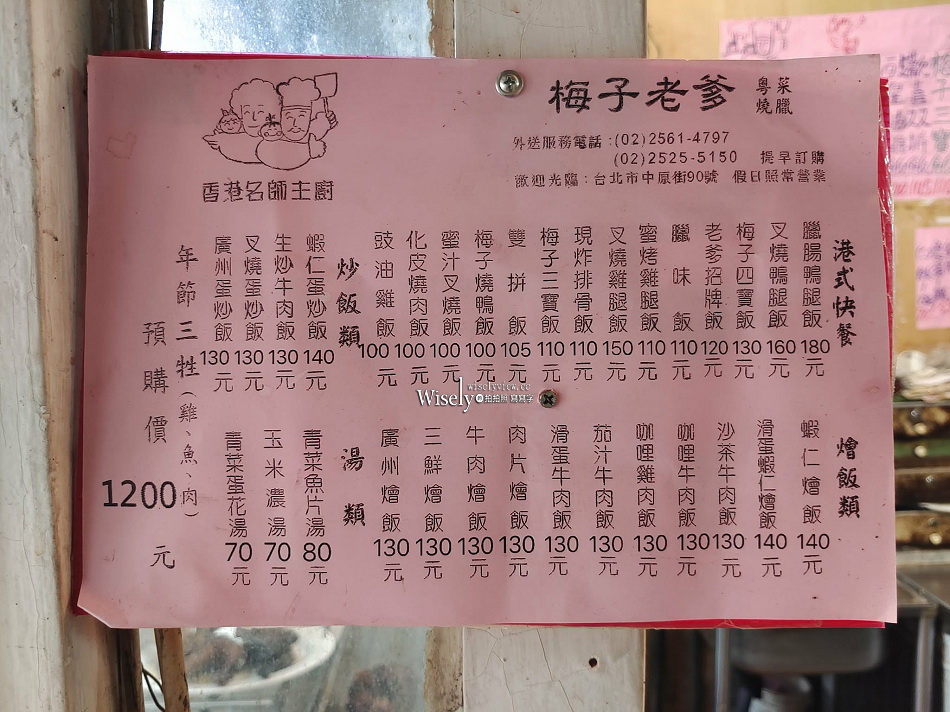 梅子老爹
粵菜
燒臘
外送服務電話:(02)2561-4797
(02)2525-5150 提早訂購
歡迎光臨:台北市中原街90號 假日照常營業
香港名師主廚
港式快餐
臘腸鴨腿飯 180元
叉燒鴨腿飯 160元
梅子四寶飯 130元
老爹招牌飯 120元
臘味飯 110元
蜜烤雞腿飯 110元
叉燒雞腿飯 150元
現炸排骨飯 110元
梅子三寶飯 110元
雙拼飯 105元
梅子燒鴨飯 100元
蜜汁叉燒飯 100元
化皮燒肉飯 100元
豉油雞飯 100元
炒飯類
蝦仁蛋炒飯 140元
生炒牛肉飯 130元
叉燒蛋炒飯 130元
廣州蛋炒飯 130元
燴飯類
蝦仁燴飯 140元
滑蛋蝦仁燴飯 140元
沙茶牛肉飯 130元
咖哩牛肉飯 130元
咖哩雞肉飯 130元
茄汁牛肉飯 130元
滑蛋牛肉飯 130元
肉片燴飯 130元
牛肉燴飯 130元
三鮮燴飯 130元
廣州燴飯 130元
湯類
青菜魚片湯 80元
玉米濃湯 70元
青菜蛋花湯 70元
年節三牲(雞、魚、肉)
預購價1200元
wiselyview.cc
Wisely拍拍照寫寫字